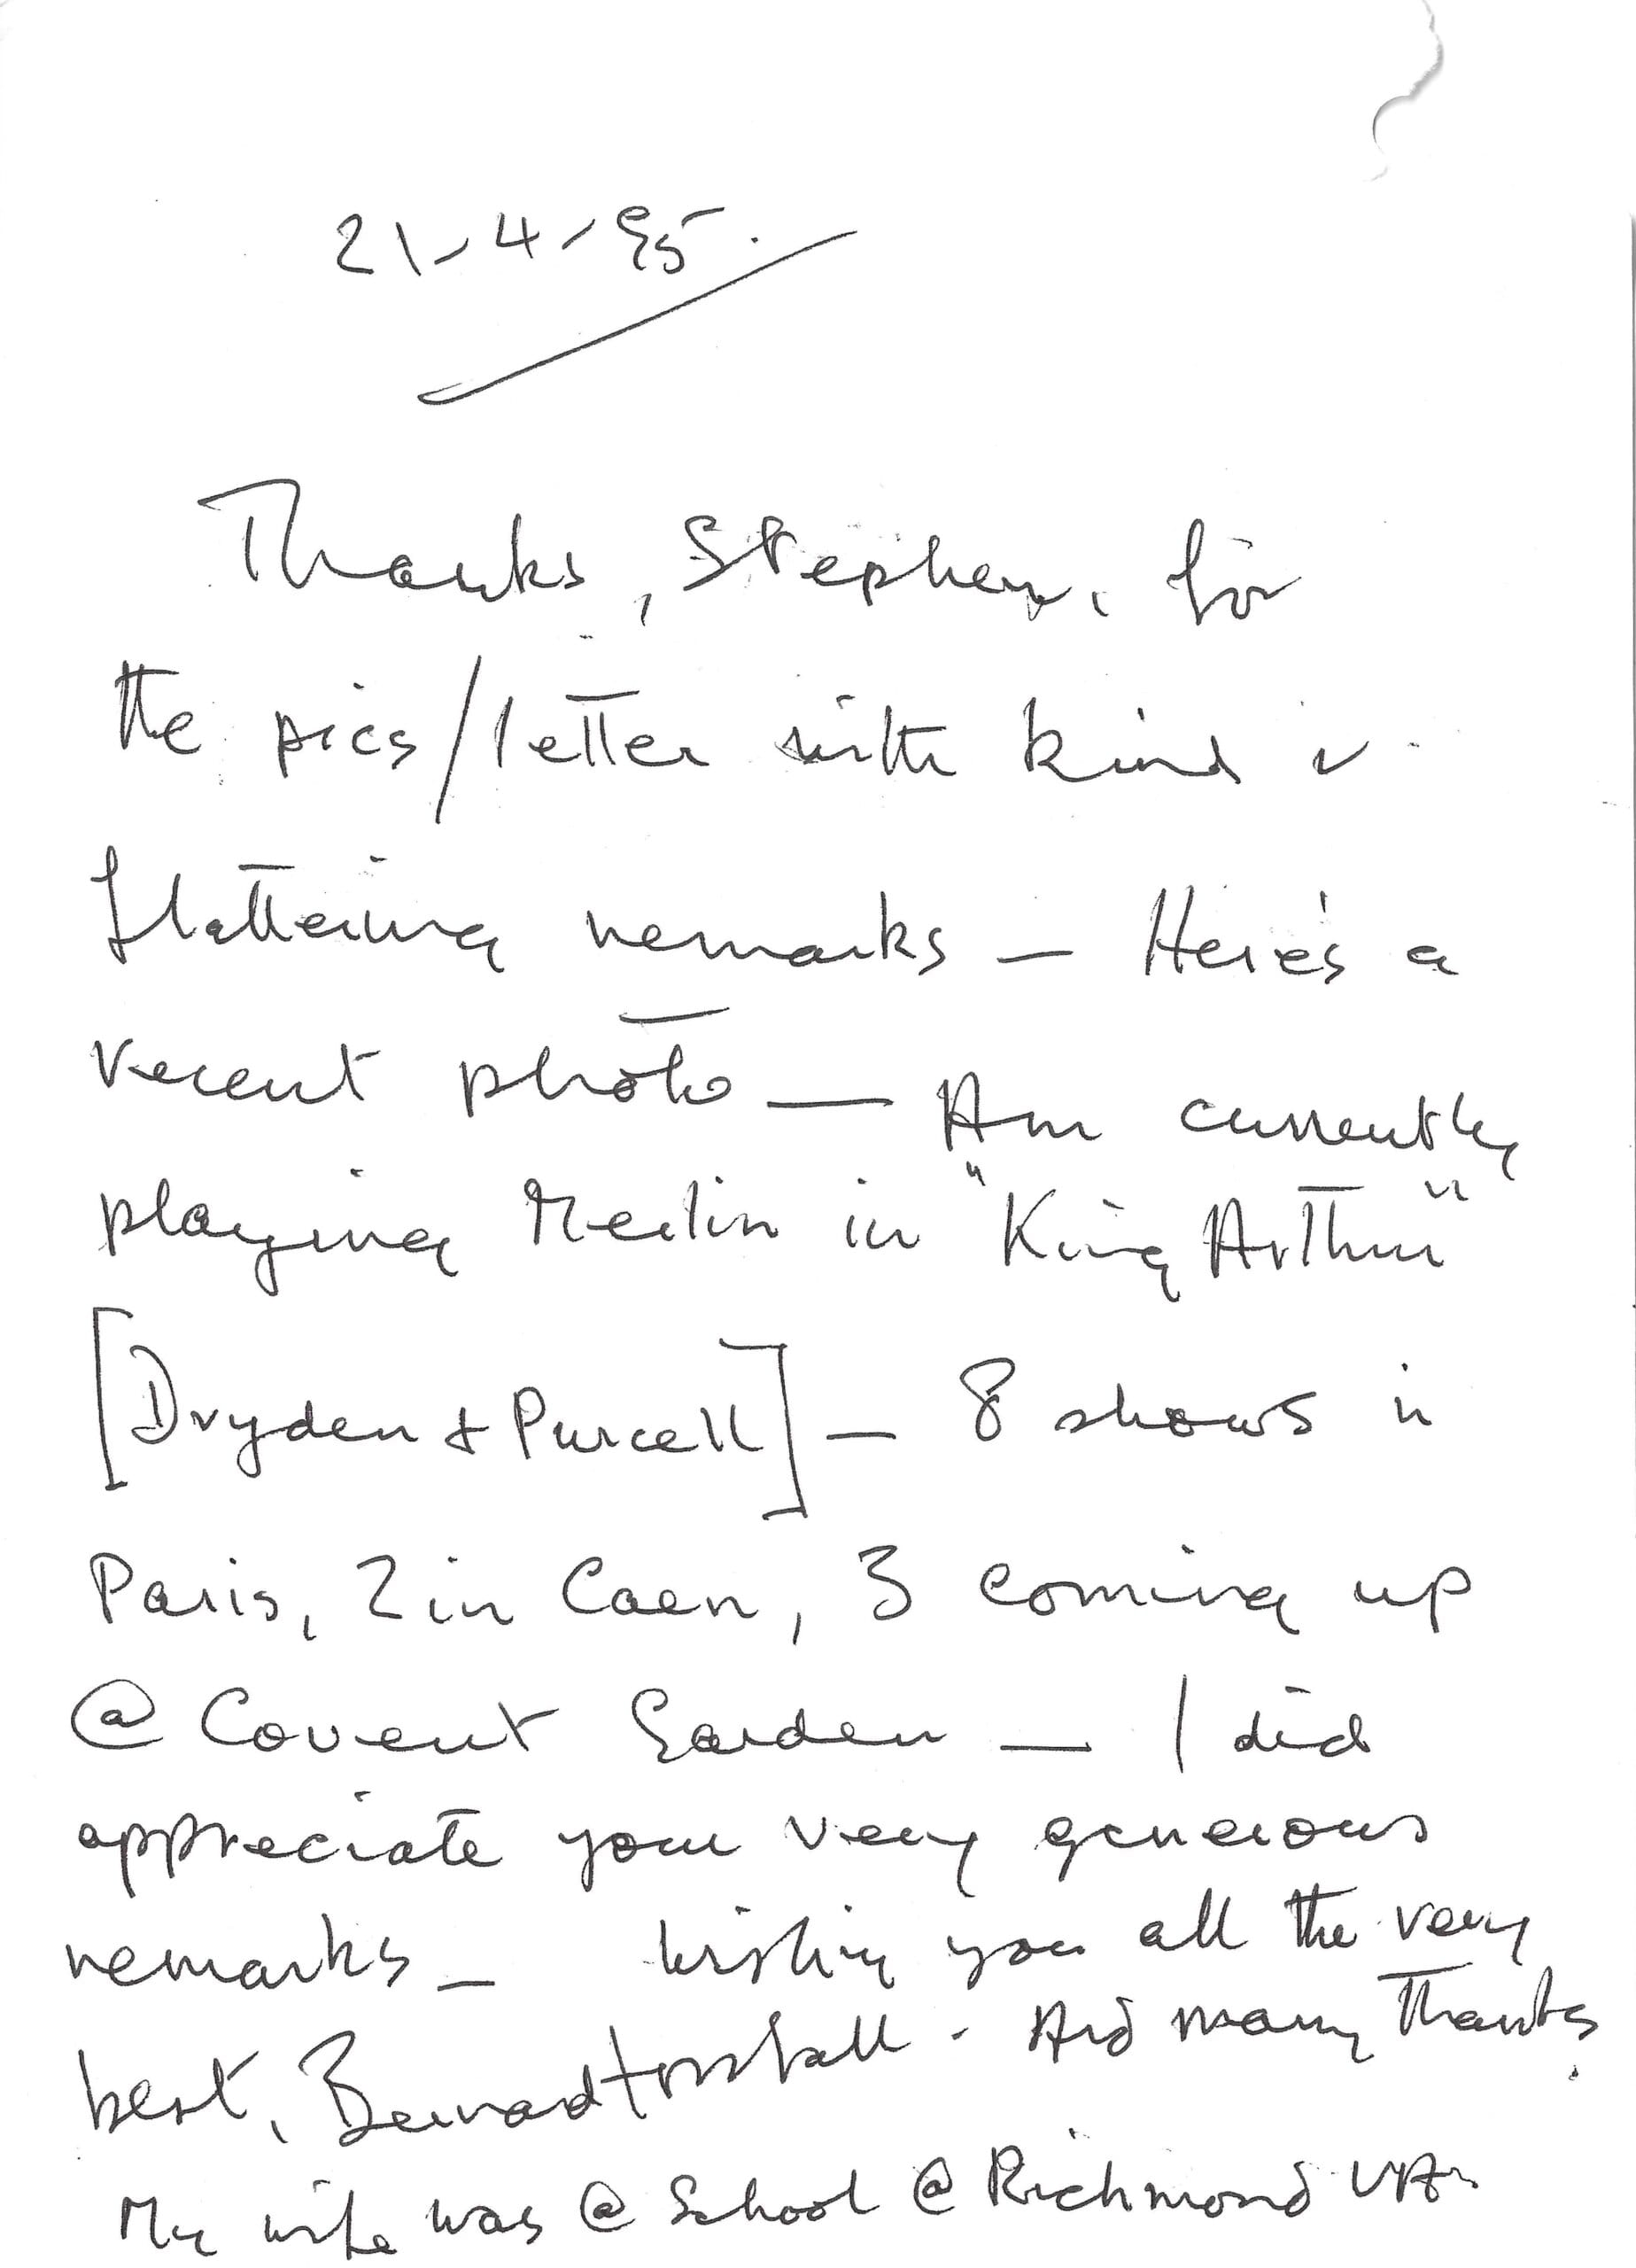 21-4-95.
Thanks, Stephen, for
the pics/letter with kind &
flattering remarks — Here's a
recent photo — Am currently
playing Merlin in "King Arthur"
[Dryden & Purcell] — 8 shows in
Paris, 2 in Caen, 3 coming up
@ Covent Garden — I did
appreciate your very generous
remarks — Wishing you all the very
best, Bernard Horsfall. And many thanks.
My wife was @ School @ Richmond VA.